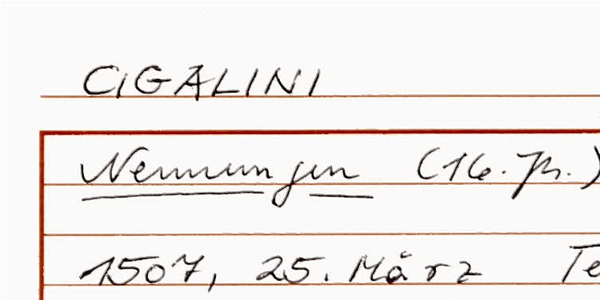 CIGALINI
Nennungen (16. Jh.)
1507, 25. März Te